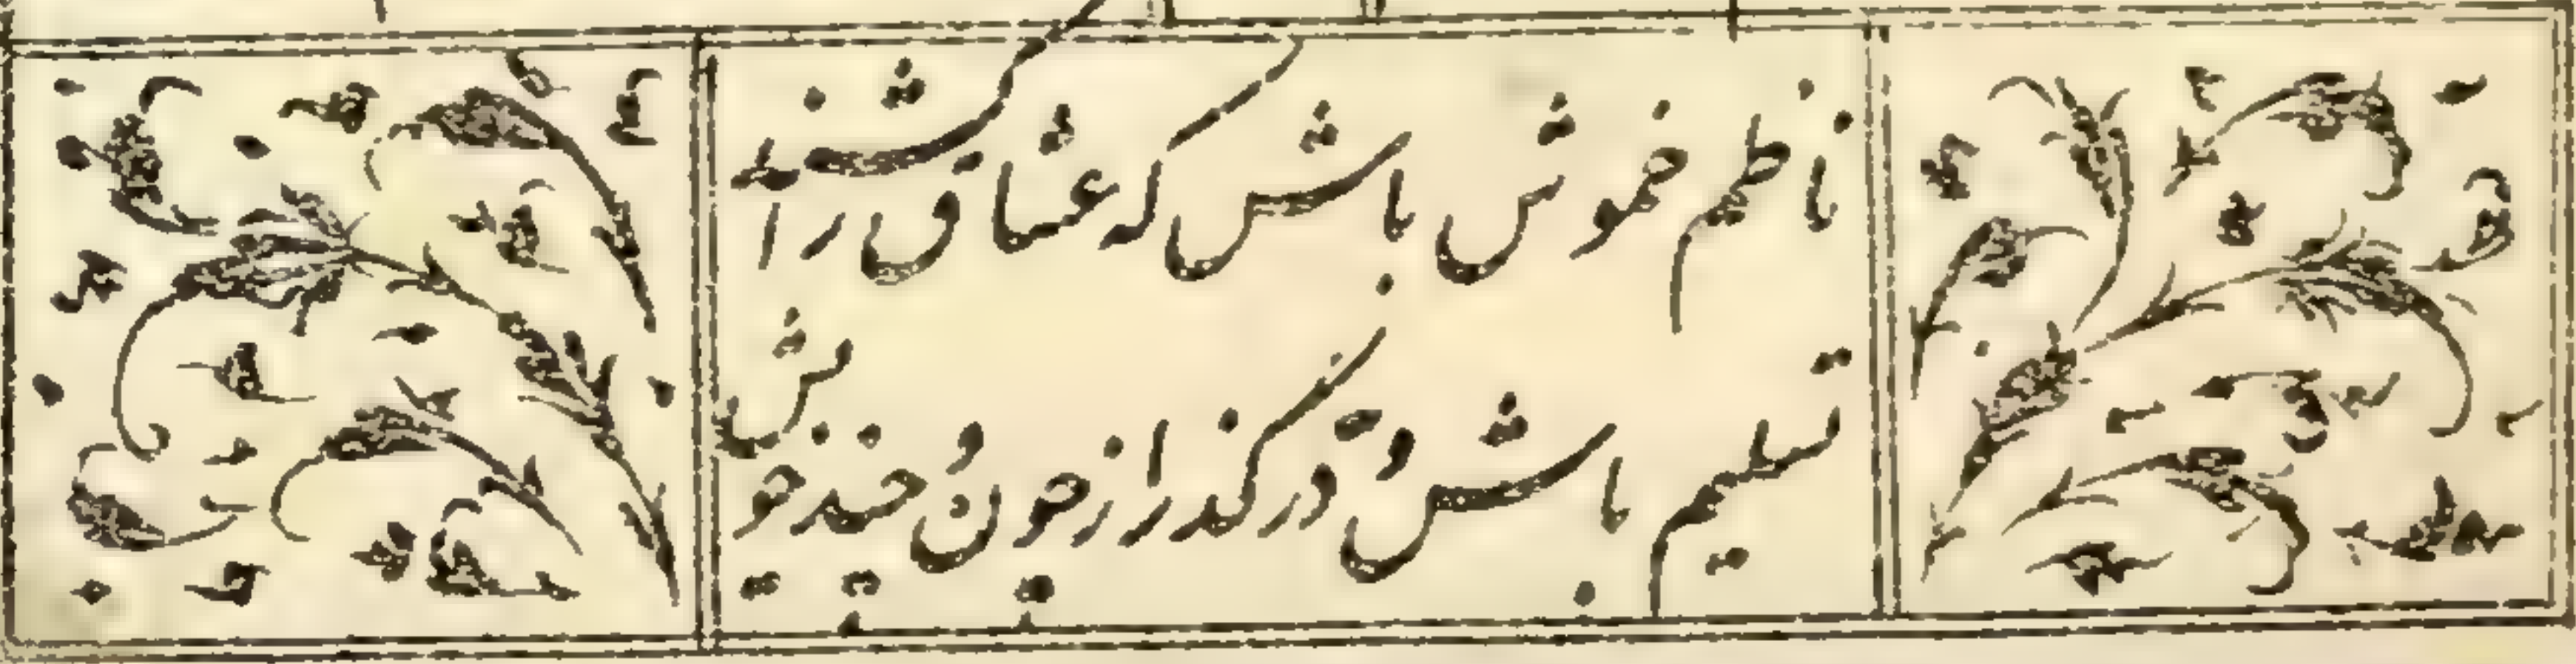 ناظم خموش باش که عشاق را
تسلیم باش و درگذر از چون و چند خویش